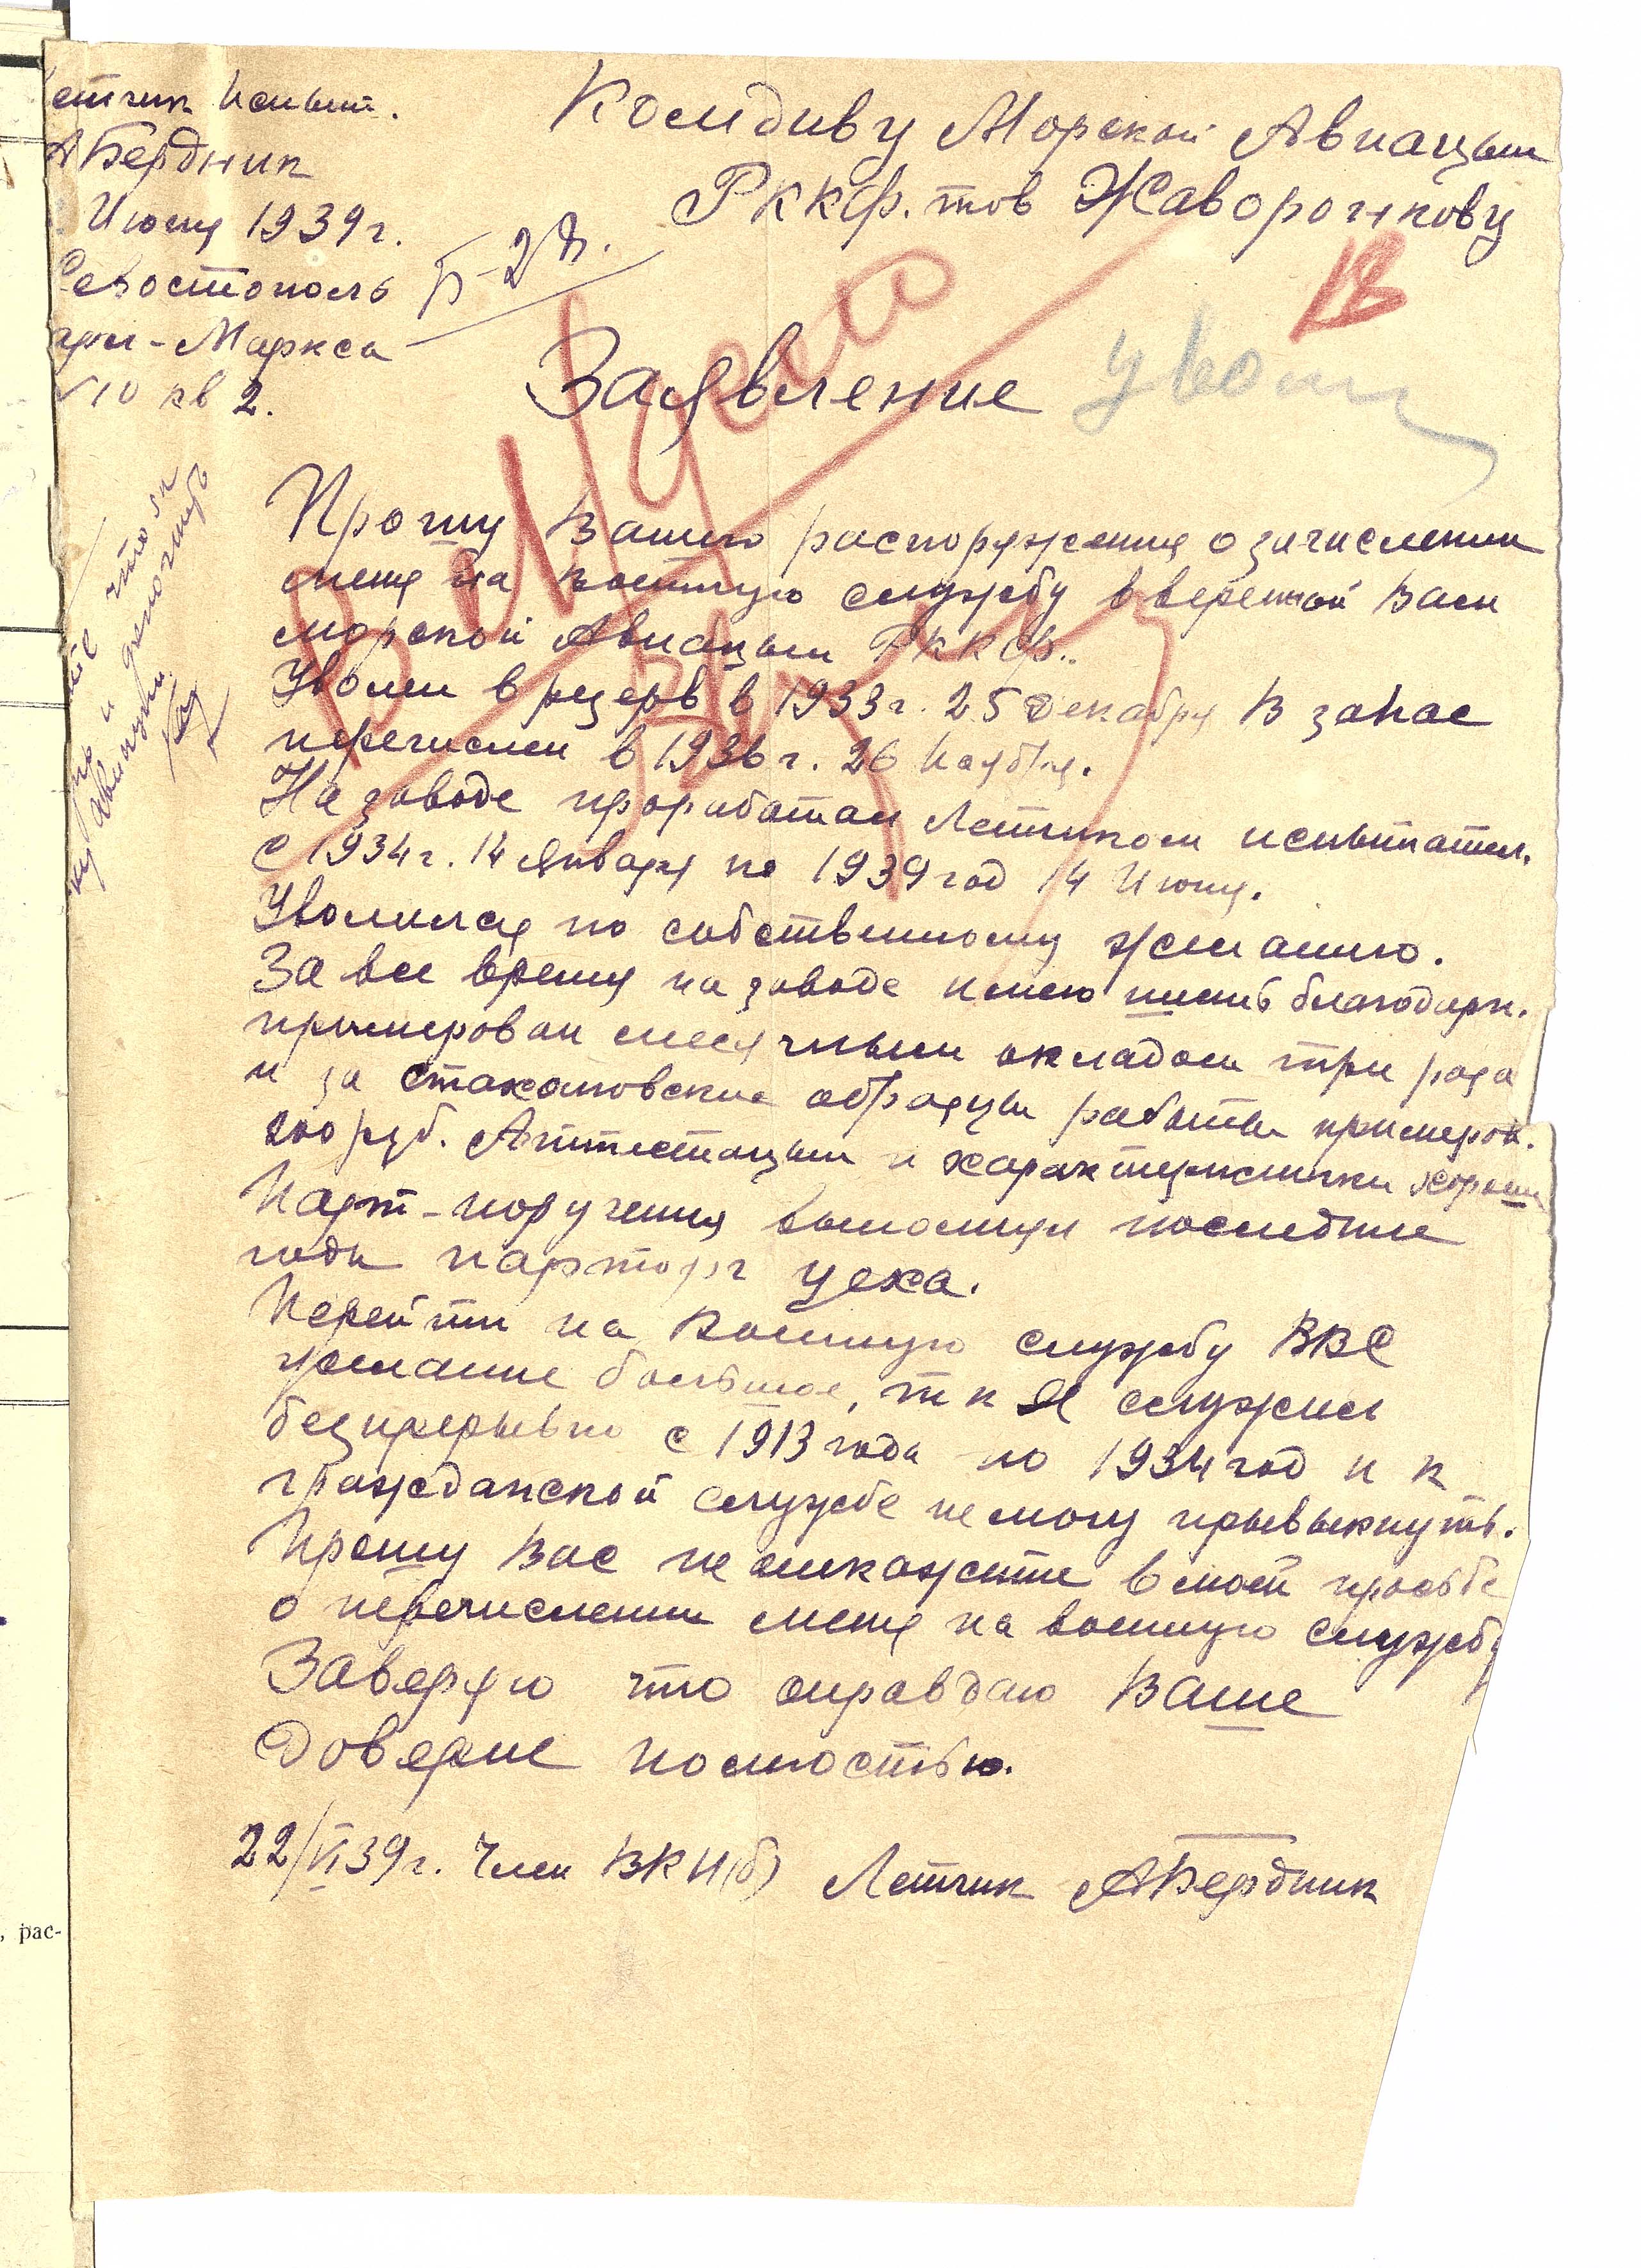 етчик Испыт.
АБердник
Июня 1939г.
Севостополь
Маркса
10 кв 2.
Комдиву Морской Авиацыи
РККФ. тов Жаворонкову
Б-2
В
Заявление
Прошу Вашего распоряжения о зачислении
меня на военную службу вверенной Вам
морской Авиацыи РККФ..
Уволен в резерв в 1933г. 25 декабря В запас
перечислен в 1936г. 26 Ноября.
На заводе проработал Летчиком испытател.
С 1934г. 14 Января по 1939 год 14 Июня.
Уволился по собственному желанию.
За все время на заводе имею шесть благодарн.
примерован месячным окладом три раза
и за стахановские образцы работы примеров.
200 руб. Аттестацыи и характеристики хороши
Парт-поручения выполнял последние
годы парторг цеха.
Перейти на Военную службу ВВС
желание большое, т к Я служил
безпрерывно с 1913 года по 1934 год и к
гражданской службе не могу привыкнуть.
Прошу Вас не откажите в моей просьбе
о перечислении меня на военную службу
Заверяю что оправдаю Ваше
Доверие полностью.
22/VI 39г. Член ВКП(б) Летчик АБердник
, рас-